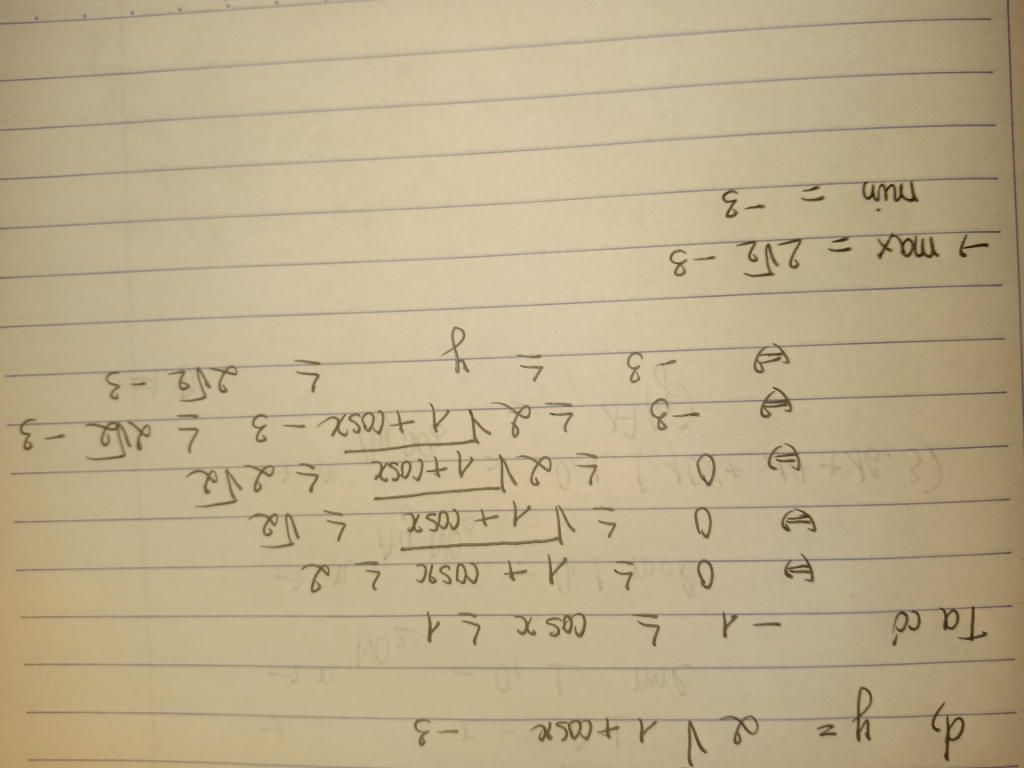 d, y = 2√1+cosx -3
Ta có -1 ≤ cosx ≤ 1
⇔ 0 ≤ 1 + cosx ≤ 2
⇔ 0 ≤ √1 + cosx ≤ √2
⇔ 0 ≤ 2√1+cosx ≤ 2√2
⇔ -3 ≤ 2√1+cosx -3 ≤ 2√2 -3
⇔ -3 ≤ y ≤ 2√2 -3
→ max = 2√2 -3
min = -3